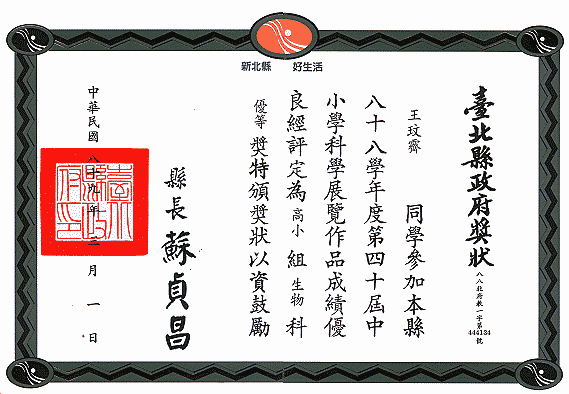 新北縣 好生活
臺北縣政府獎狀
八八北府教一字第
444134
號
王玟霽 同學參加本縣
八十八學年度第四十屆中
小學科學展覽作品成績優
良經評定為高小組生物科
優等獎特頒獎狀以資鼓勵
縣長 蘇貞昌
中華民國八十九年三月一日